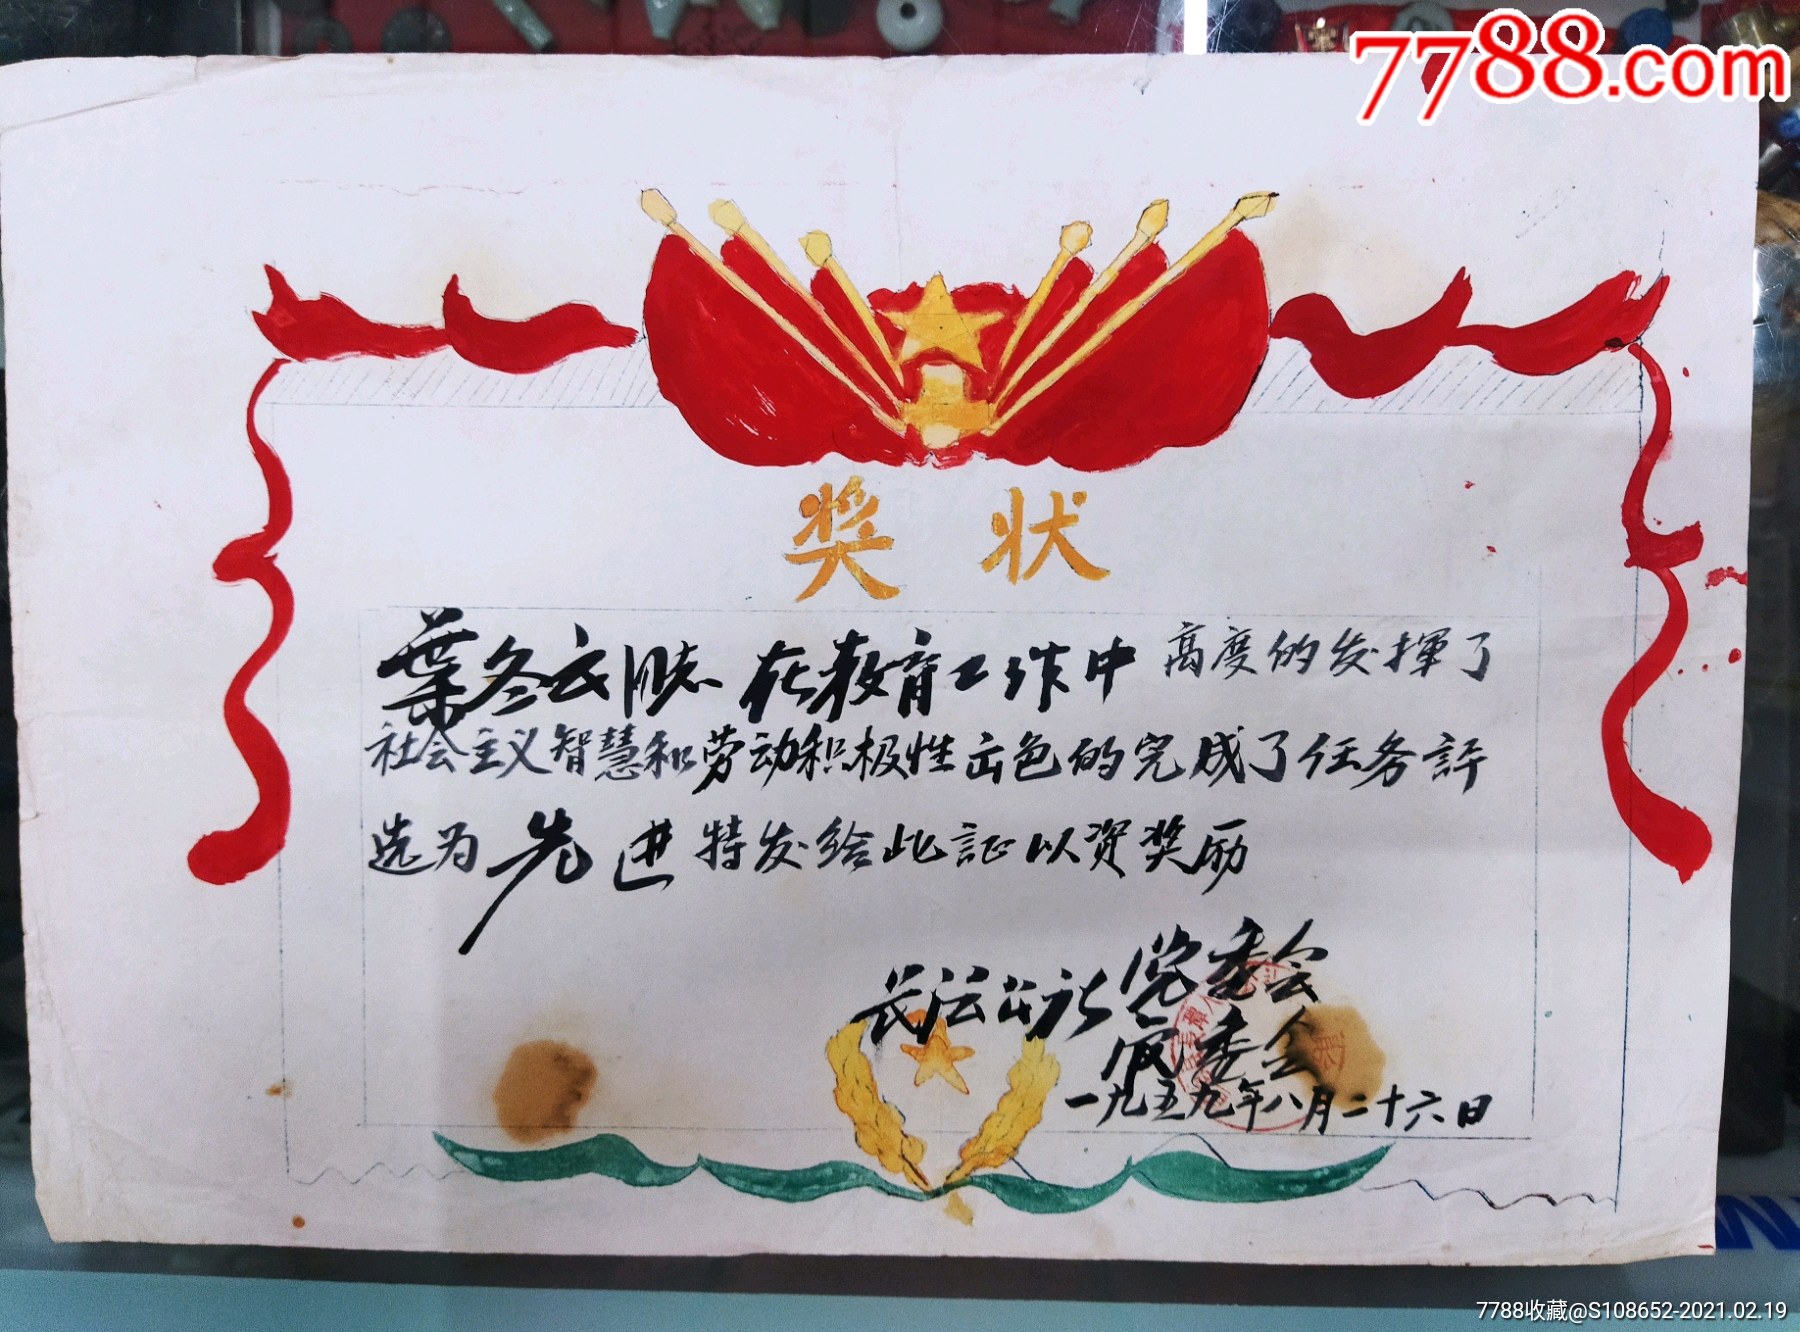 7788.com
奖状
葉冬云同志 在教育工作中 高度的发揮了
社会主义智慧和劳动积极性出色的完成了任务評
选为 先进 特发给此証以资奖励
长坛公社 党委会
管委会
一九五九年八月二十六日
7788收藏@S108652-2021.02.19